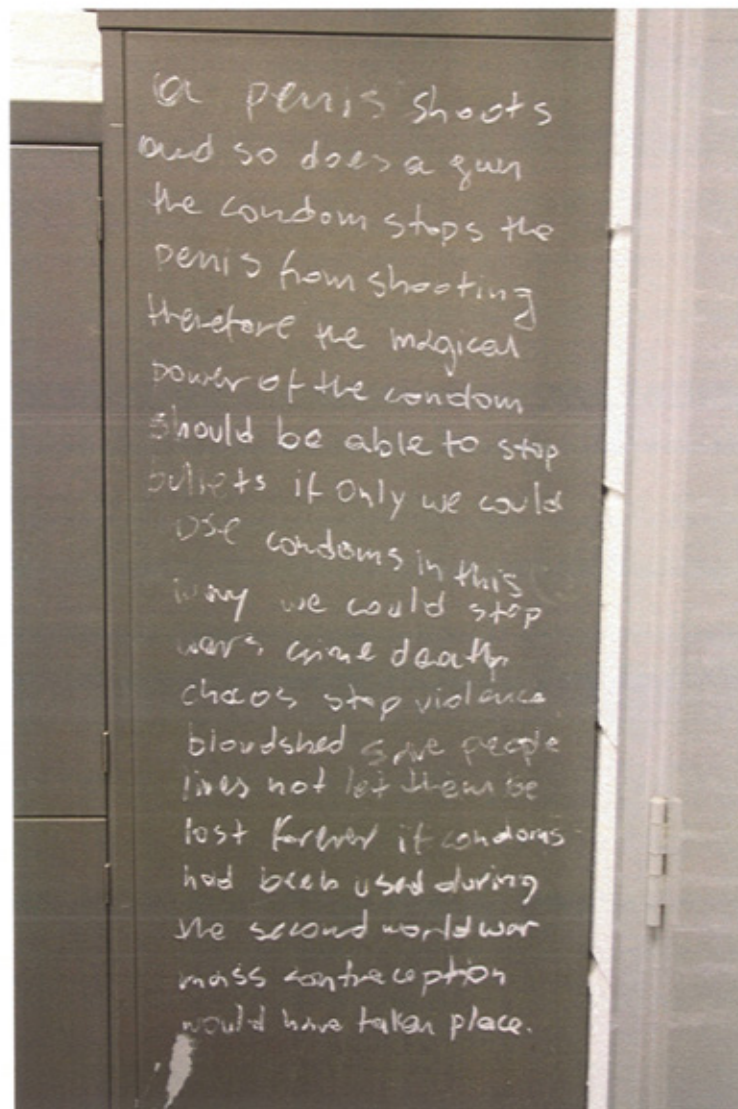 a penis shoots
and so does a gun
the condom stops the
penis from shooting
therefore the magical
power of the condom
should be able to stop
bullets if only we could
use condoms in this
way we could stop
wars crime death
chaos stop violence
bloodshed save people
lives not let them be
lost forever if condoms
had been used during
the second world war
mass contraception
would have taken place.